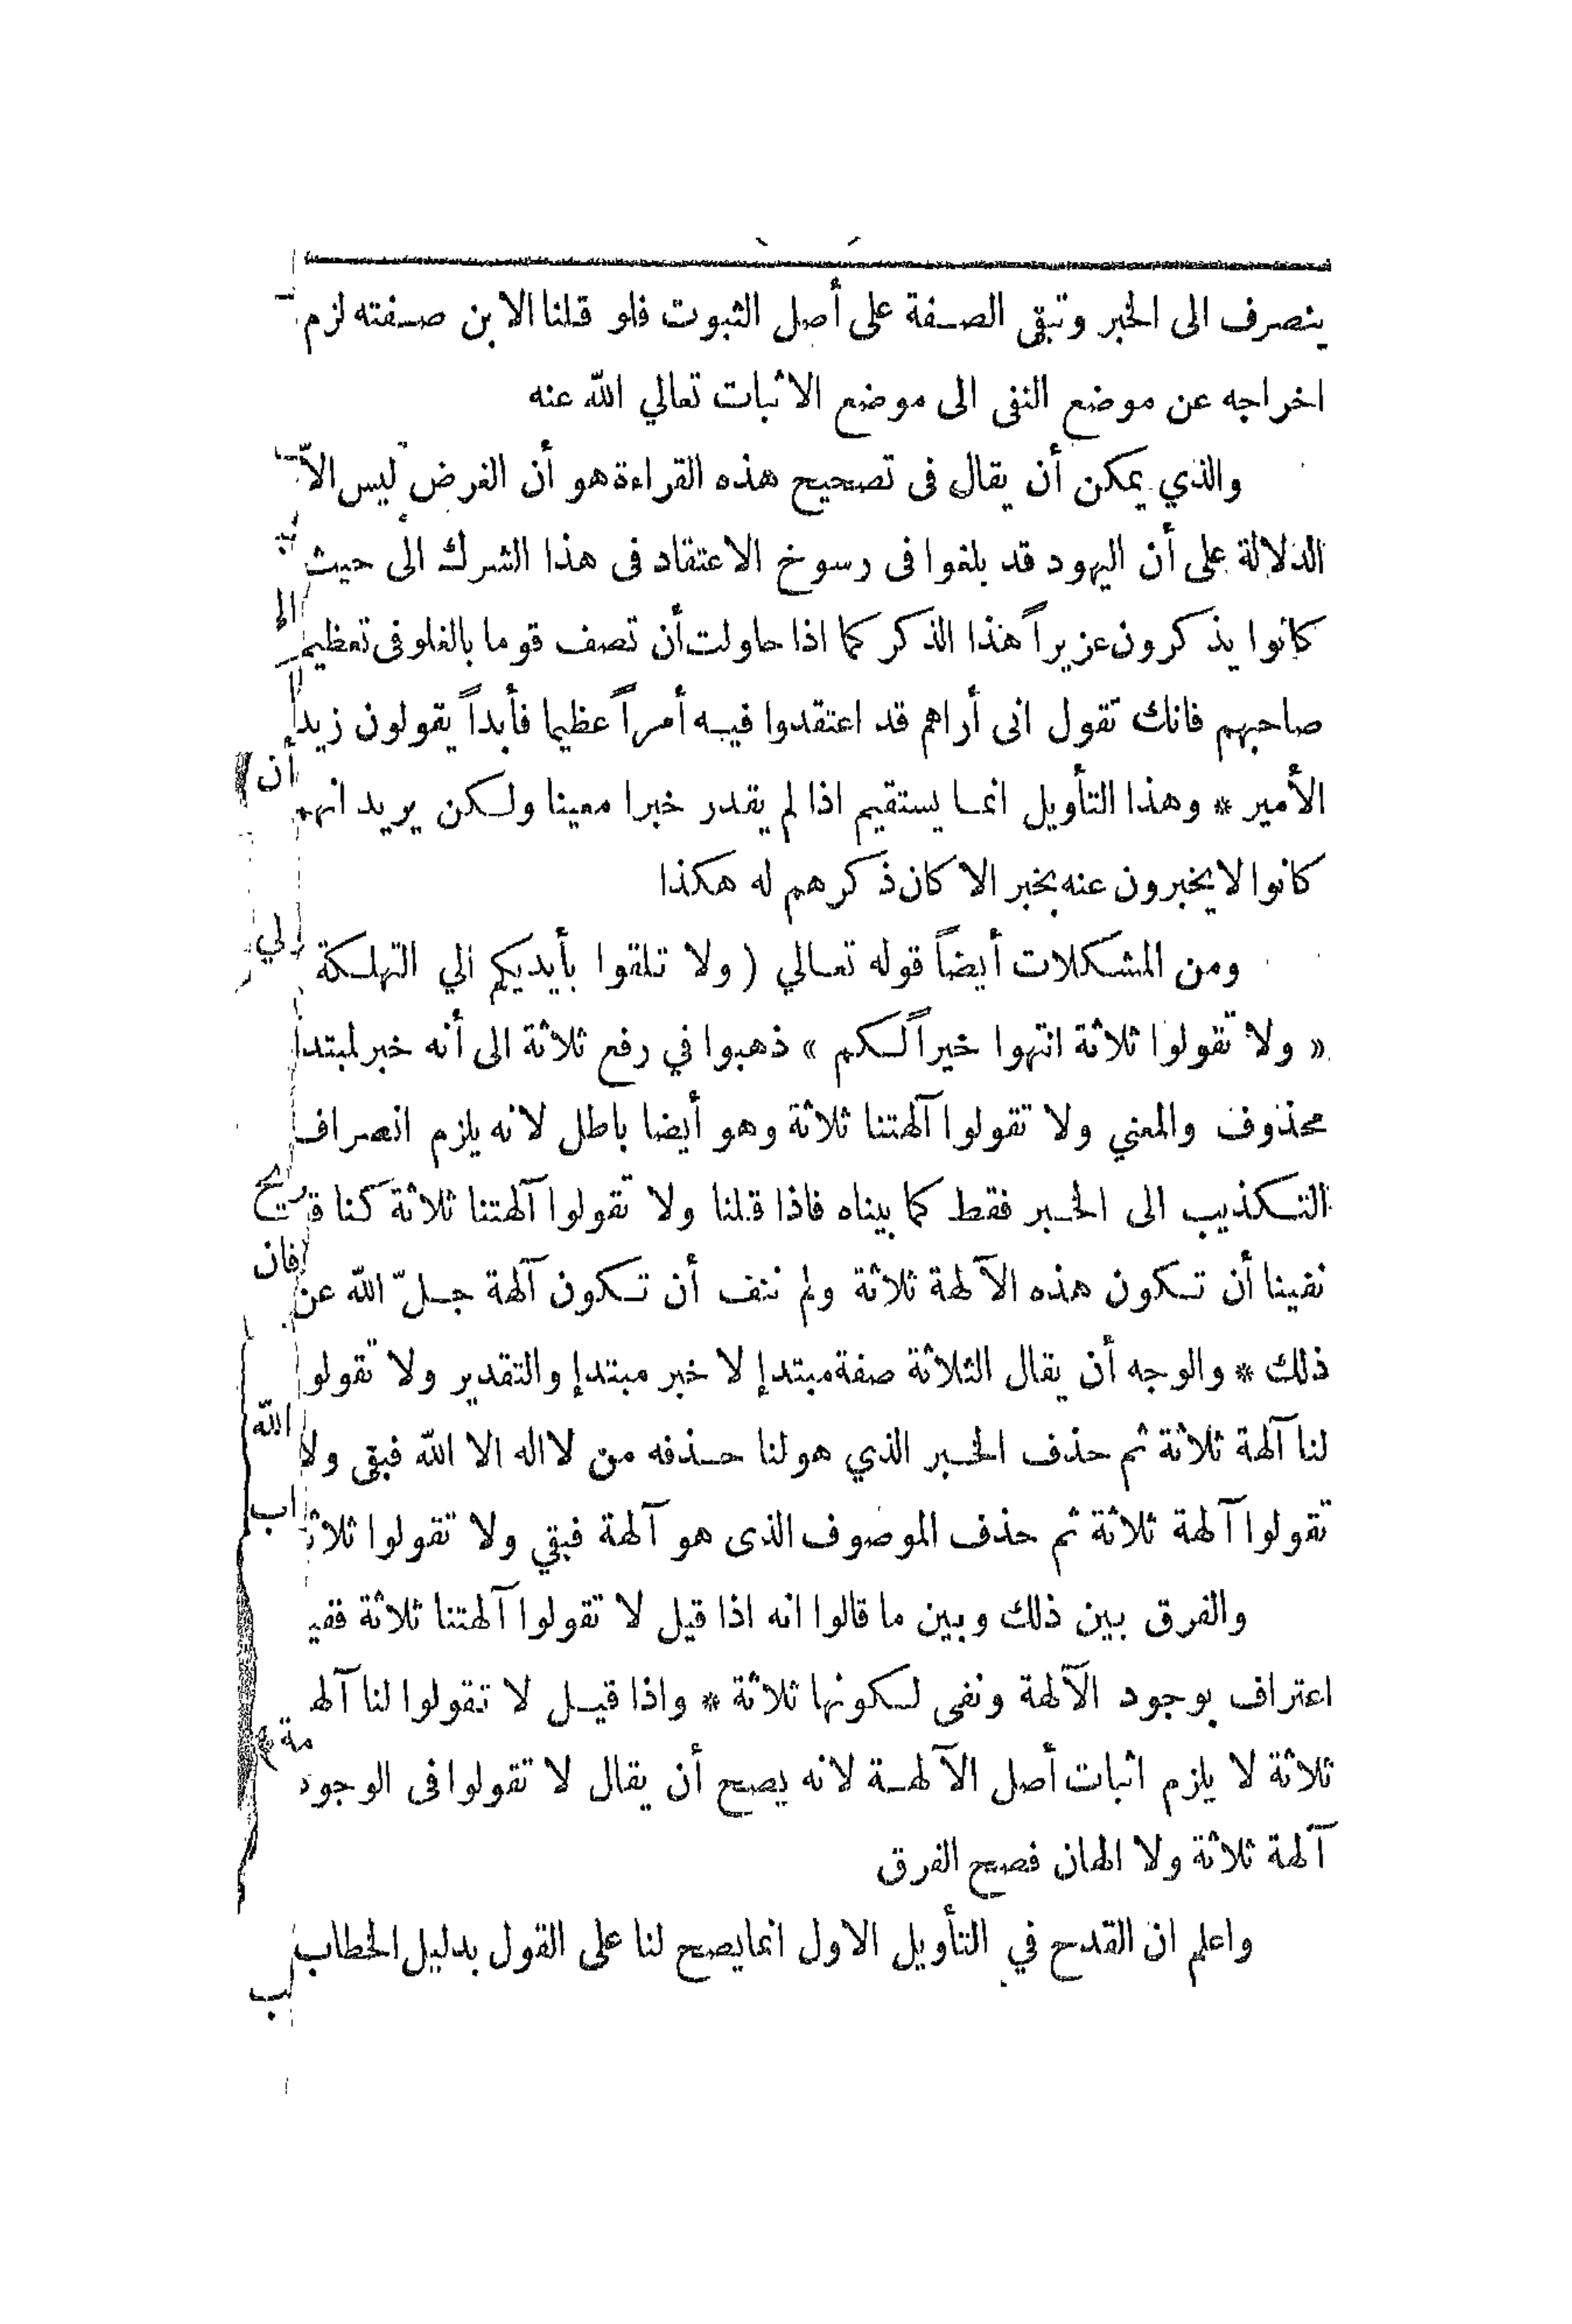 ينصرف الى الخبر وتبقى الصفة على أصل الثبوت فلو قلنا الابن صفته لزم
اخراجه عن موضع النفى الى موضع الاثبات تعالي الله عنه
والذي يمكن أن يقال فى تصحيح هذه القراءة هو أن الغرض ليس الا
الدلالة على أن اليهود قد بلغوا فى رسوخ الاعتقاد فى هذا الشرك الى حيث
كانوا يذكرون عزيراً هذا الذكر كما اذا حاولت أن تصف قوما بالغلو فى تعظيم
صاحبهم فانك تقول انى أراهم قد اعتقدوا فيه أمراً عظيما فأبداً يقولون زيد
الأمير * وهذا التأويل انما يستقيم اذا لم يقدر خبرا معينا ولكن يريد انهم
كانوا لا يخبرون عنه بخبر الا كان ذكرهم له هكذا
ومن المشكلات أيضاً قوله تعالي ( ولا تلقوا بأيديكم الي التهلكة
« ولا تقولوا ثلاثة انتهوا خيراً لكم » ذهبوا في رفع ثلاثة الى أنه خبر لمبتدا
محذوف والمعني ولا تقولوا آلهتنا ثلاثة وهو أيضا باطل لانه يلزم انصراف
التكذيب الى الخبر فقط كما بيناه فاذا قلنا ولا تقولوا آلهتنا ثلاثة كنا ق
نفينا أن تكون هذه الآلهة ثلاثة ولم ننف أن تكون آلهة جلّ الله عن
ذلك * والوجه أن يقال الثلاثة صفة مبتدإ لا خبر مبتدإ والتقدير ولا تقولو
لنا آلهة ثلاثة ثم حذف الخبر الذي هو لنا حذفه من لا اله الا الله فبقى ولا
تقولوا آلهة ثلاثة ثم حذف الموصوف الذى هو آلهة فبقي ولا تقولوا ثلاثة
والفرق بين ذلك وبين ما قالوا انه اذا قيل لا تقولوا آلهتنا ثلاثة ففي
اعتراف بوجود الآلهة ونفى لكونها ثلاثة * واذا قيل لا تقولوا لنا آله
ثلاثة لا يلزم اثبات أصل الآلهة لانه يصح أن يقال لا تقولوا فى الوجود
آلهة ثلاثة ولا الهان فصح الفرق
واعلم ان القدح في التأويل الاول انما يصح لنا على القول بدليل الخطاب